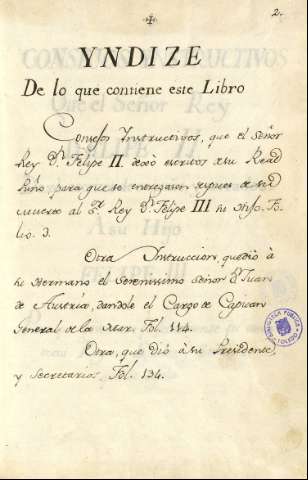 2.
YNDIZE
De lo que contiene este Libro
Consejos Instructivos, que el Señor
Rey Dn. Felipe II. dexò escritos de su Real
Puño para que se entregasen despues de su
muerte al Sr. Rey Dn. Felipe III su Hijo. Fo-
lio. 3.
Otra Instruccion, que dió à
su Hermano el Serenissimo Señor Dn. Juan
de Austria, dandole el Cargo de Capitan
General de la Mar. Fol. 114.
Otra, que dió à su Presidente,
y Secretarios, Fol. 134.
BIBLIOTECA PUBLICA
TOLEDO